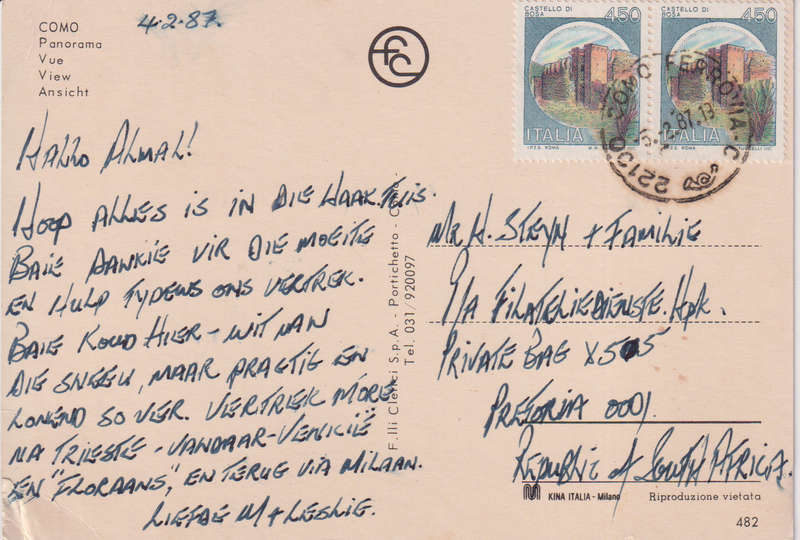 COMO
Panorama
Vue
View
Ansicht
4.2.87.
CASTELLO DI
BOSA
450
ITALIA
I.P.Z.S. ROMA
CASTELLO DI
BOSA
450
ITALIA
I.P.Z.S. ROMA
22100 COMO FERROVIA.C
-2.87.13
HALLO ALMAL!
HOOP ALLES IS IN DIE HAAK TUIS.
BAIE DANKIE VIR DIE MOEITE
EN HULP TYDENS ONS VERTREK.
BAIE KOUD HIER - WIT VAN
DIE SNEEU, MAAR PRAGTIG EN
LONEND SO VER. VERTREK MÔRE
NA TRIESTE - VANDAAR - VENICIË
EN "FLORAANS," EN TERUG VIA MILAAN.
LIEFDE M + LESLIE.
F.lli Clerici S.p.A. - Portichetto - Como
Tel. 031/920097
MR H. STEYN + FAMILIE
P/A FILATELIEDIENSTE. HPK.
PRIVATE BAG X505
PRETORIA 0001
REPUBLIC of SOUTH AFRICA.
KINA ITALIA - Milano
Riproduzione vietata
482